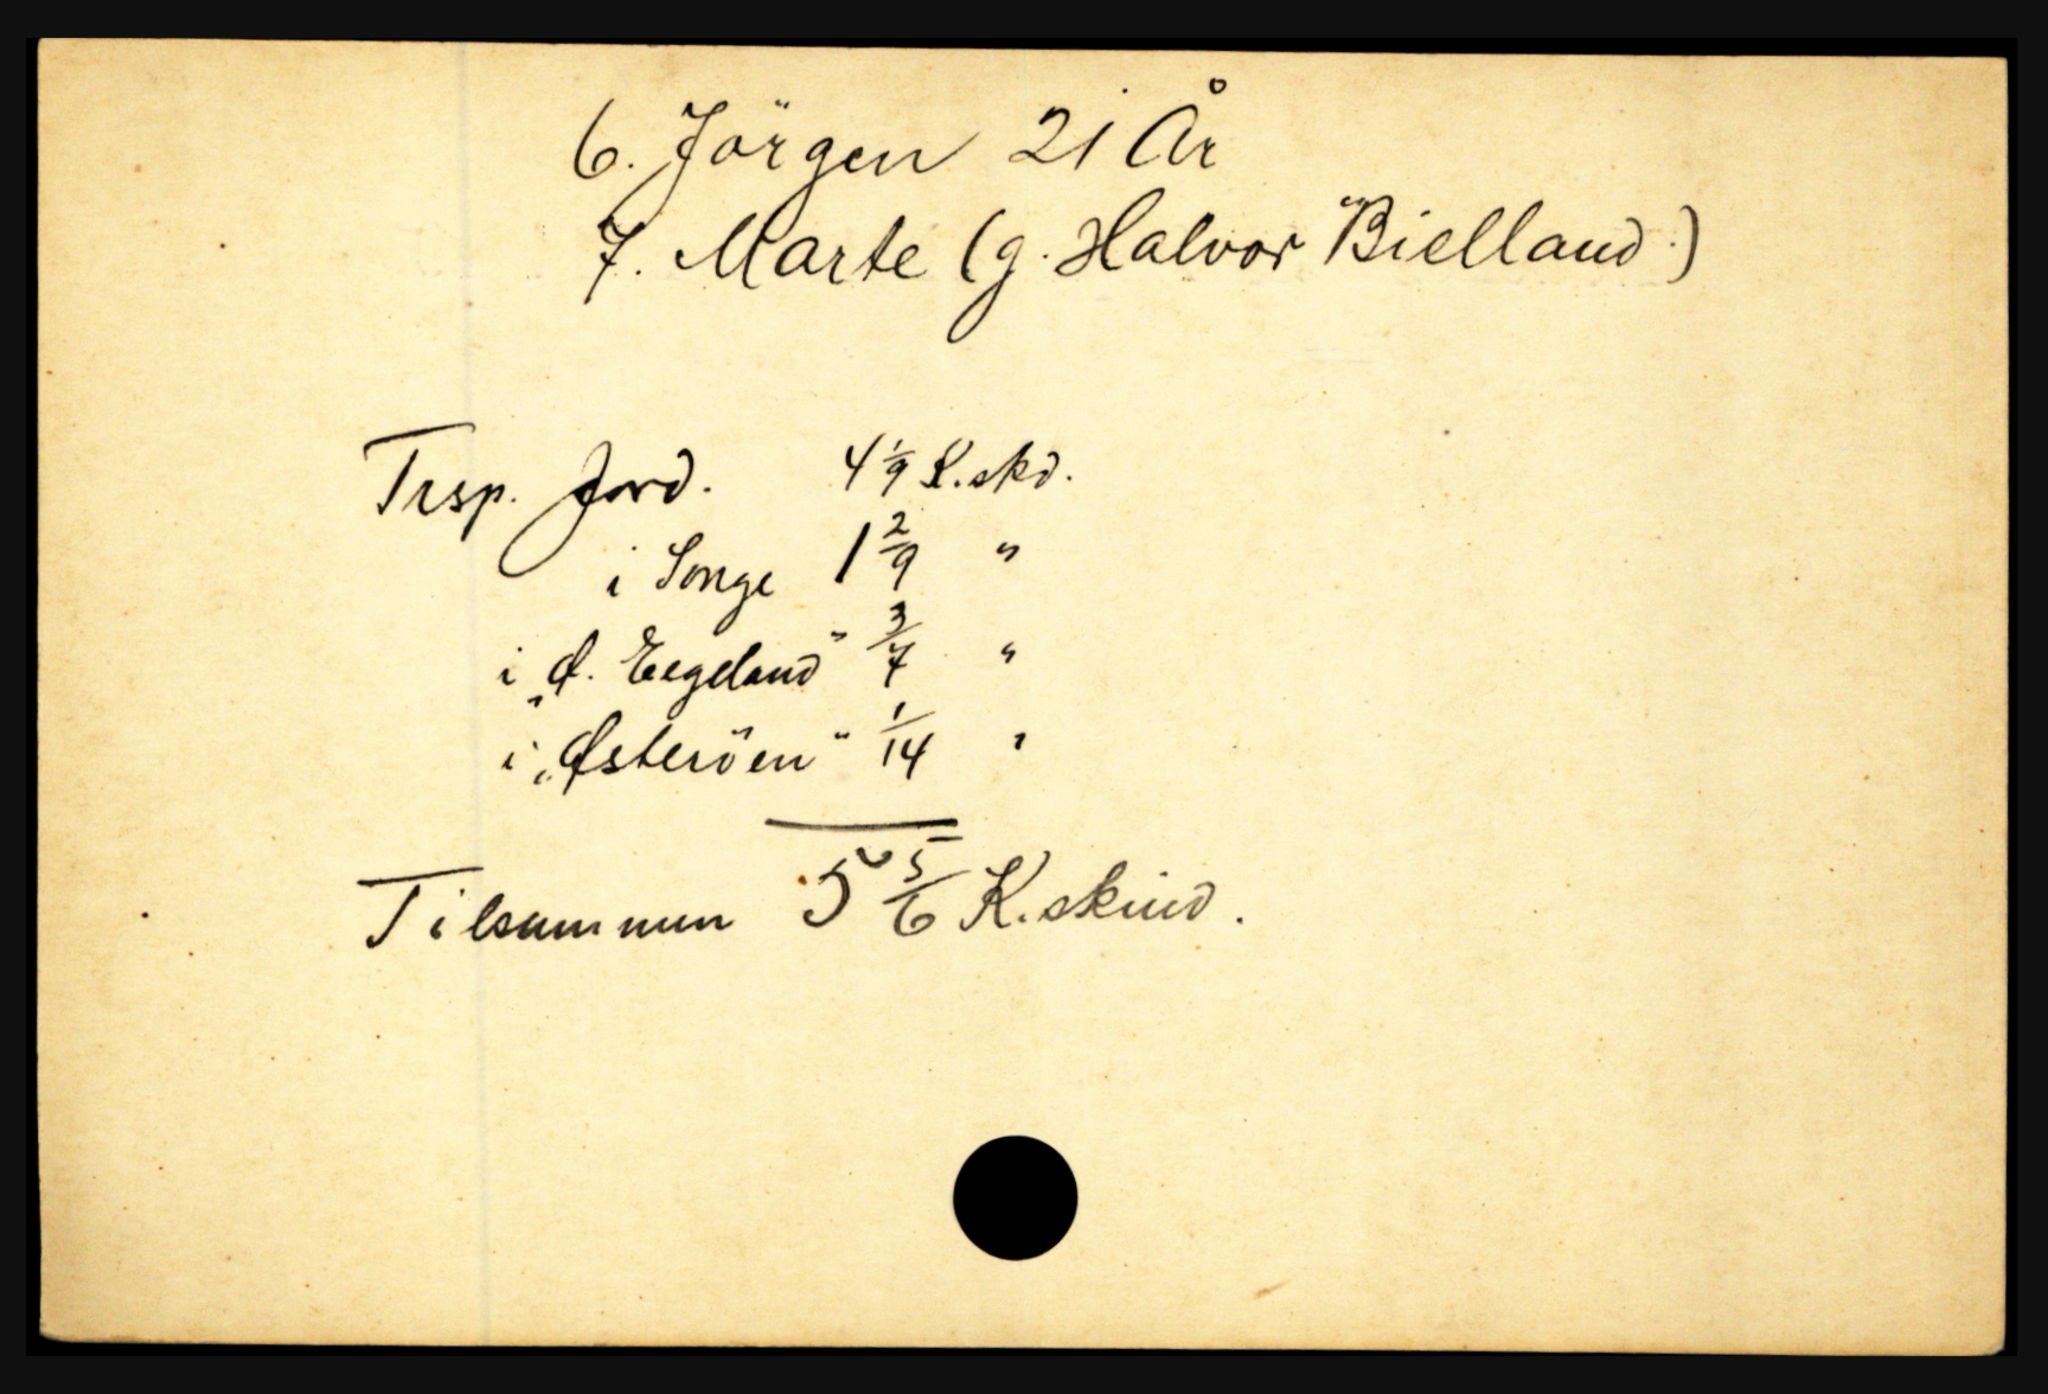 6. Jörgen 21 År
7. Marte (g. Halvor Bielland.)
Trsp. Jord. 4 1/9 K.skd.
i Songe 1 2/9 "
i „Ø. Eegeland" 3/7 "
i „Østeröen" 1/14 "
Tilsammen 5 5/6 K.skind.